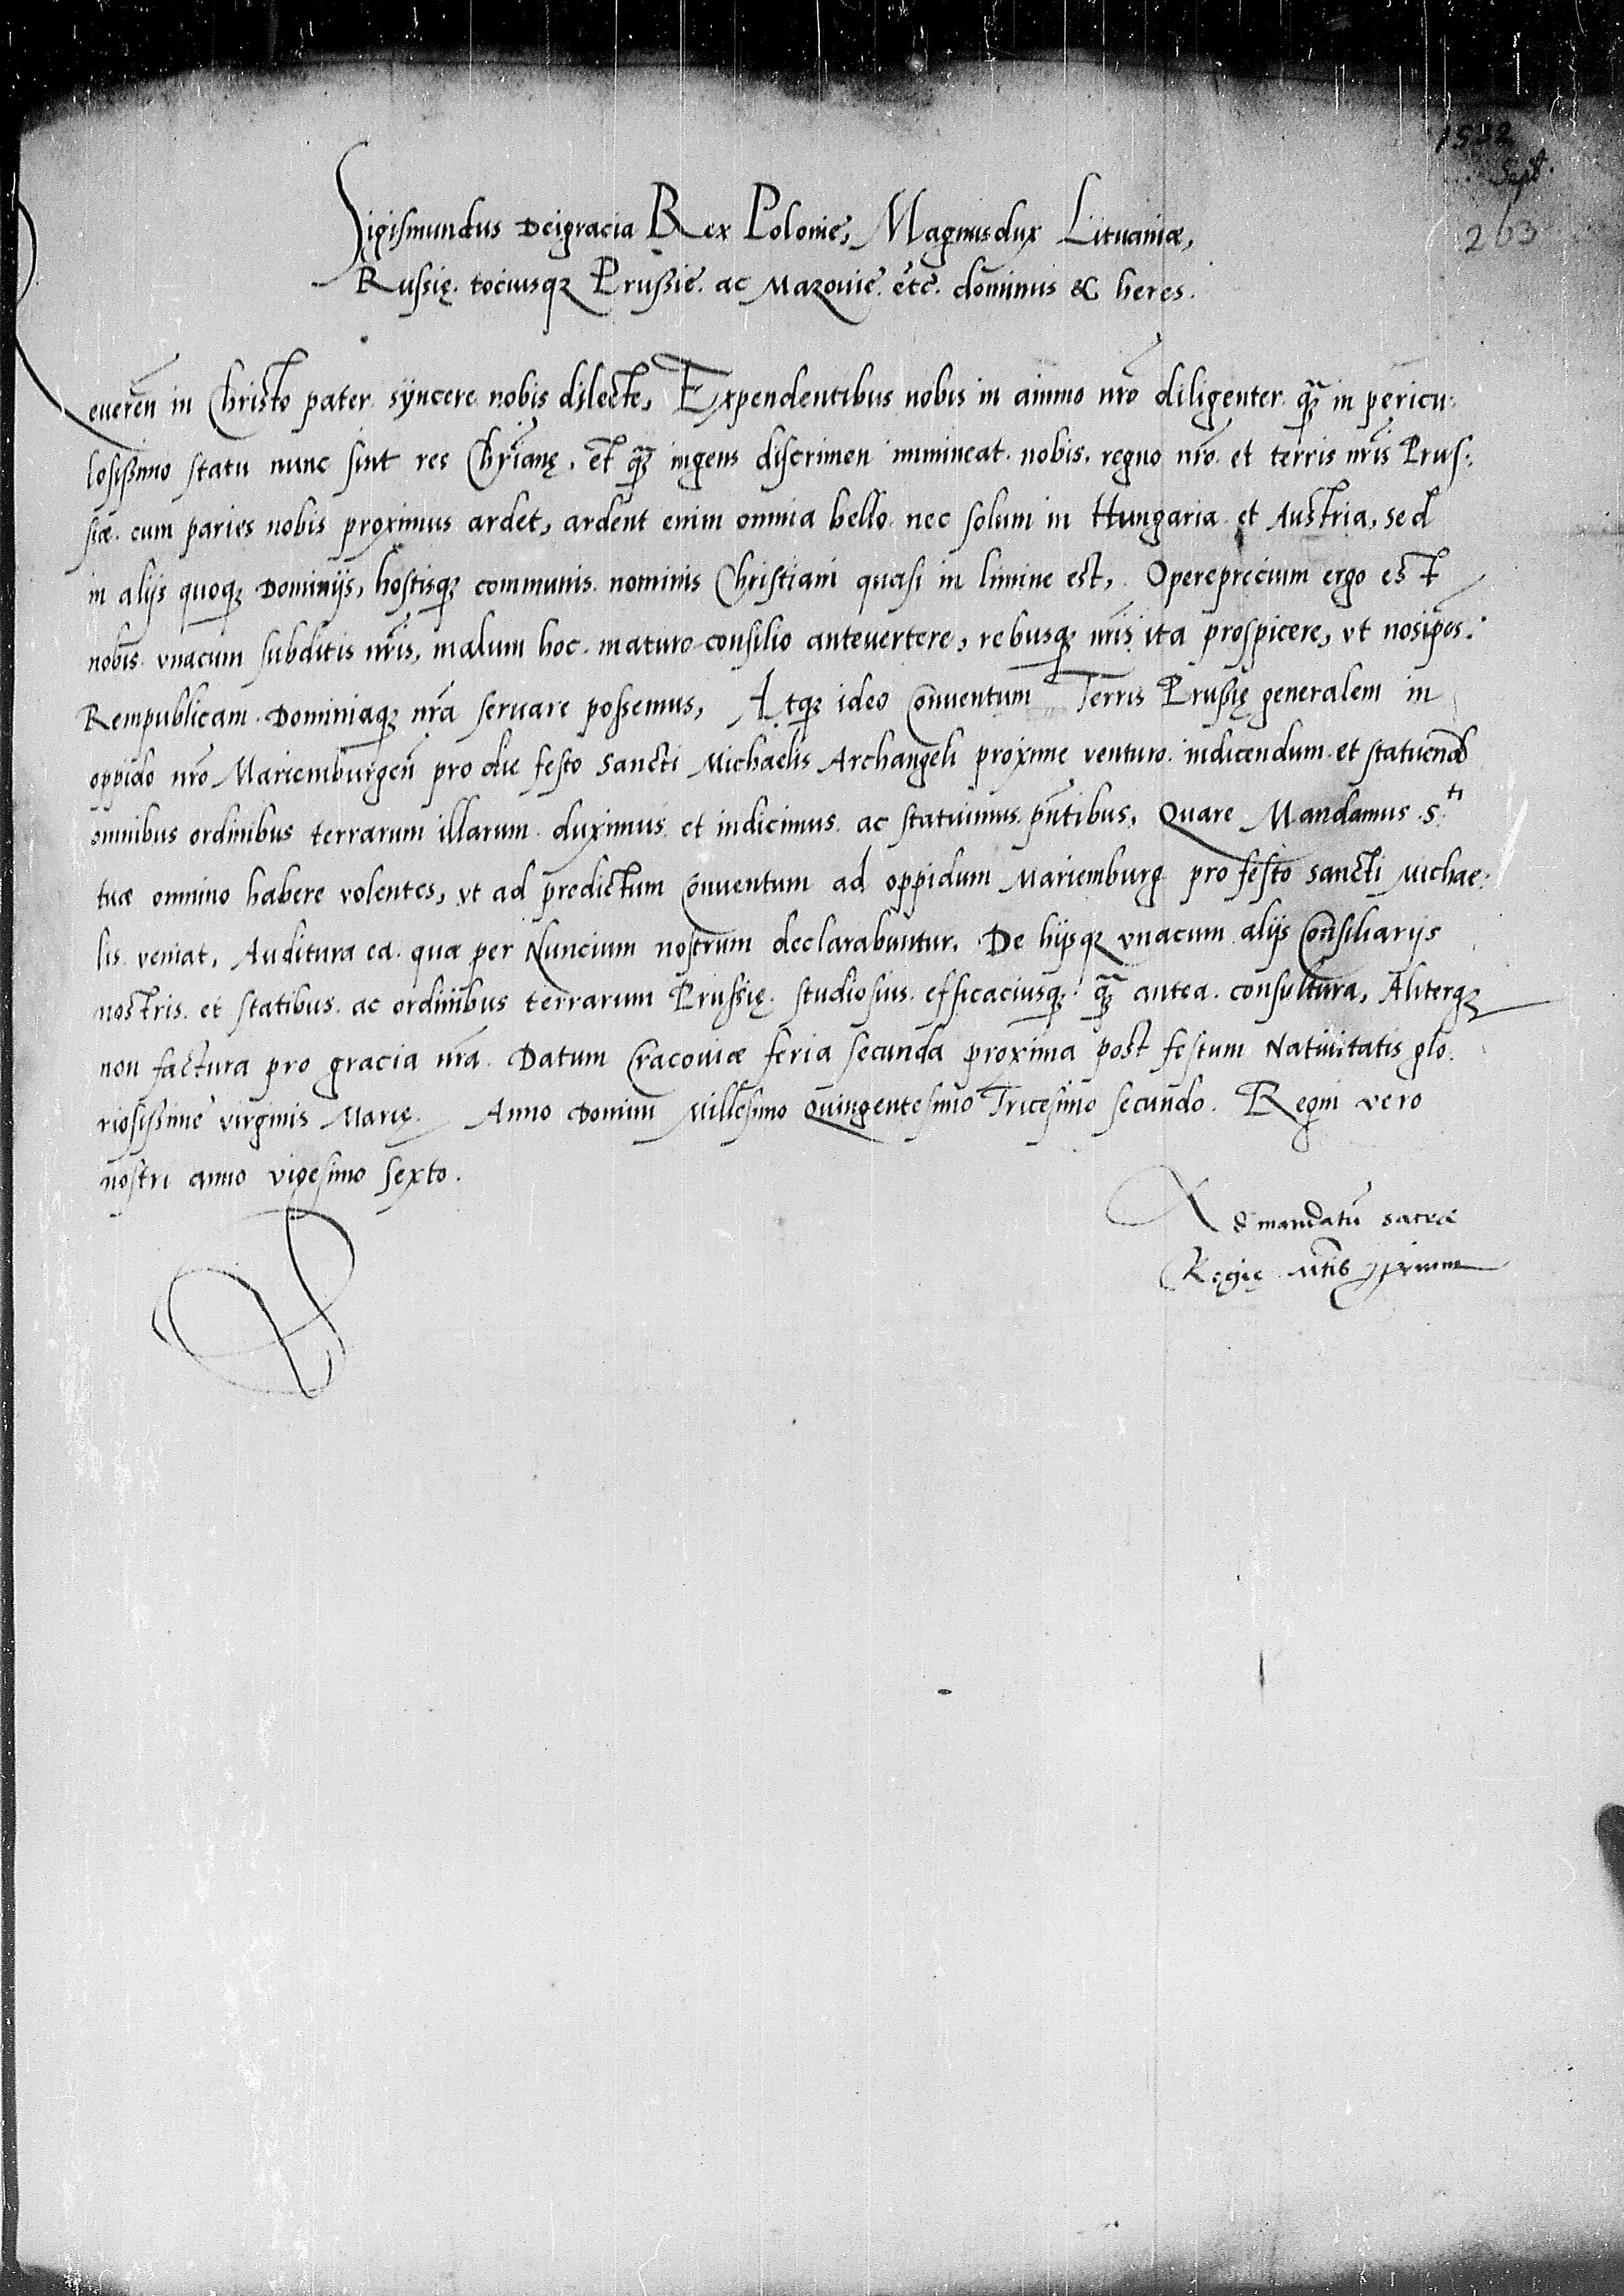 1532
Sept.
263
Sigismundus Deigracia Rex Polonię, Magnusdux Lituaniæ,
Russię. tociusqꝫ Prussię. ac Mazouię. etc̃. dominus & heres.
Reueren̄ in Christo pater syncere nobis dilecte, Expendentibus nobis in animo nr̃o diligenter. qꝫ̃ in pericu:
losissimo statu nunc sint res Chr̃ianę. et qꝫ̃ ingens discrimen immineat. nobis. regno nr̃o. et terris nr̃is Prus:
siæ. cum paries nobis proximus ardet, ardent enim omnia bello. nec solum in Hungaria. et Austria, sed
in alijs quoqꝫ Dominijs, hostisqꝫ communis. nominis Christiani quasi in limine est, Opereprecium ergo est
nobis vnacum subditis nr̃is, malum hoc. maturo consilio antevertere, rebusqꝫ nr̃is ita prospicere, vt nosip̃os.
Rempublicam. Dominiaqꝫ nr̃a seruare possemus, Atqꝫ ideo Conuentum Terris Prussię generalem in
oppido nr̃o Mariemburgen̄ pro die festo Sancti Michaelis Archangeli proxime venturo. indicendum. et statuend̃
omnibus ordinibus terrarum illarum. duximus et indicimus. ac statuimus. pn̄tibus, Quare Mandamus .S.ti
tuæ omnino habere volentes, vt ad predictum Conuentum ad oppidum Mariemburg pro festo Sancti Michae:
lis veniat, Auditura ea. quæ per Nuncium nostrum declarabuntur. De hijsqꝫ vnacum alijs Con̄siliarijs
nostris. et statibus. ac ordinibus terrarum Prussię. studiosius. efficaciusqꝫ. qꝫ̃ antea. consultura, Aliterqꝫ
non factura pro gracia nr̃a. Datum Cracouiæ feria secunda proxima post festum Natiuitatis glo.
riosissimę virginis Marię. Anno Domini Millesimo Quingentesimo Tricesimo secundo. Regni vero
nostri anno vigesimo sexto.
Ad mandatũ sacræ
Regię Mt̃is ꝓprium